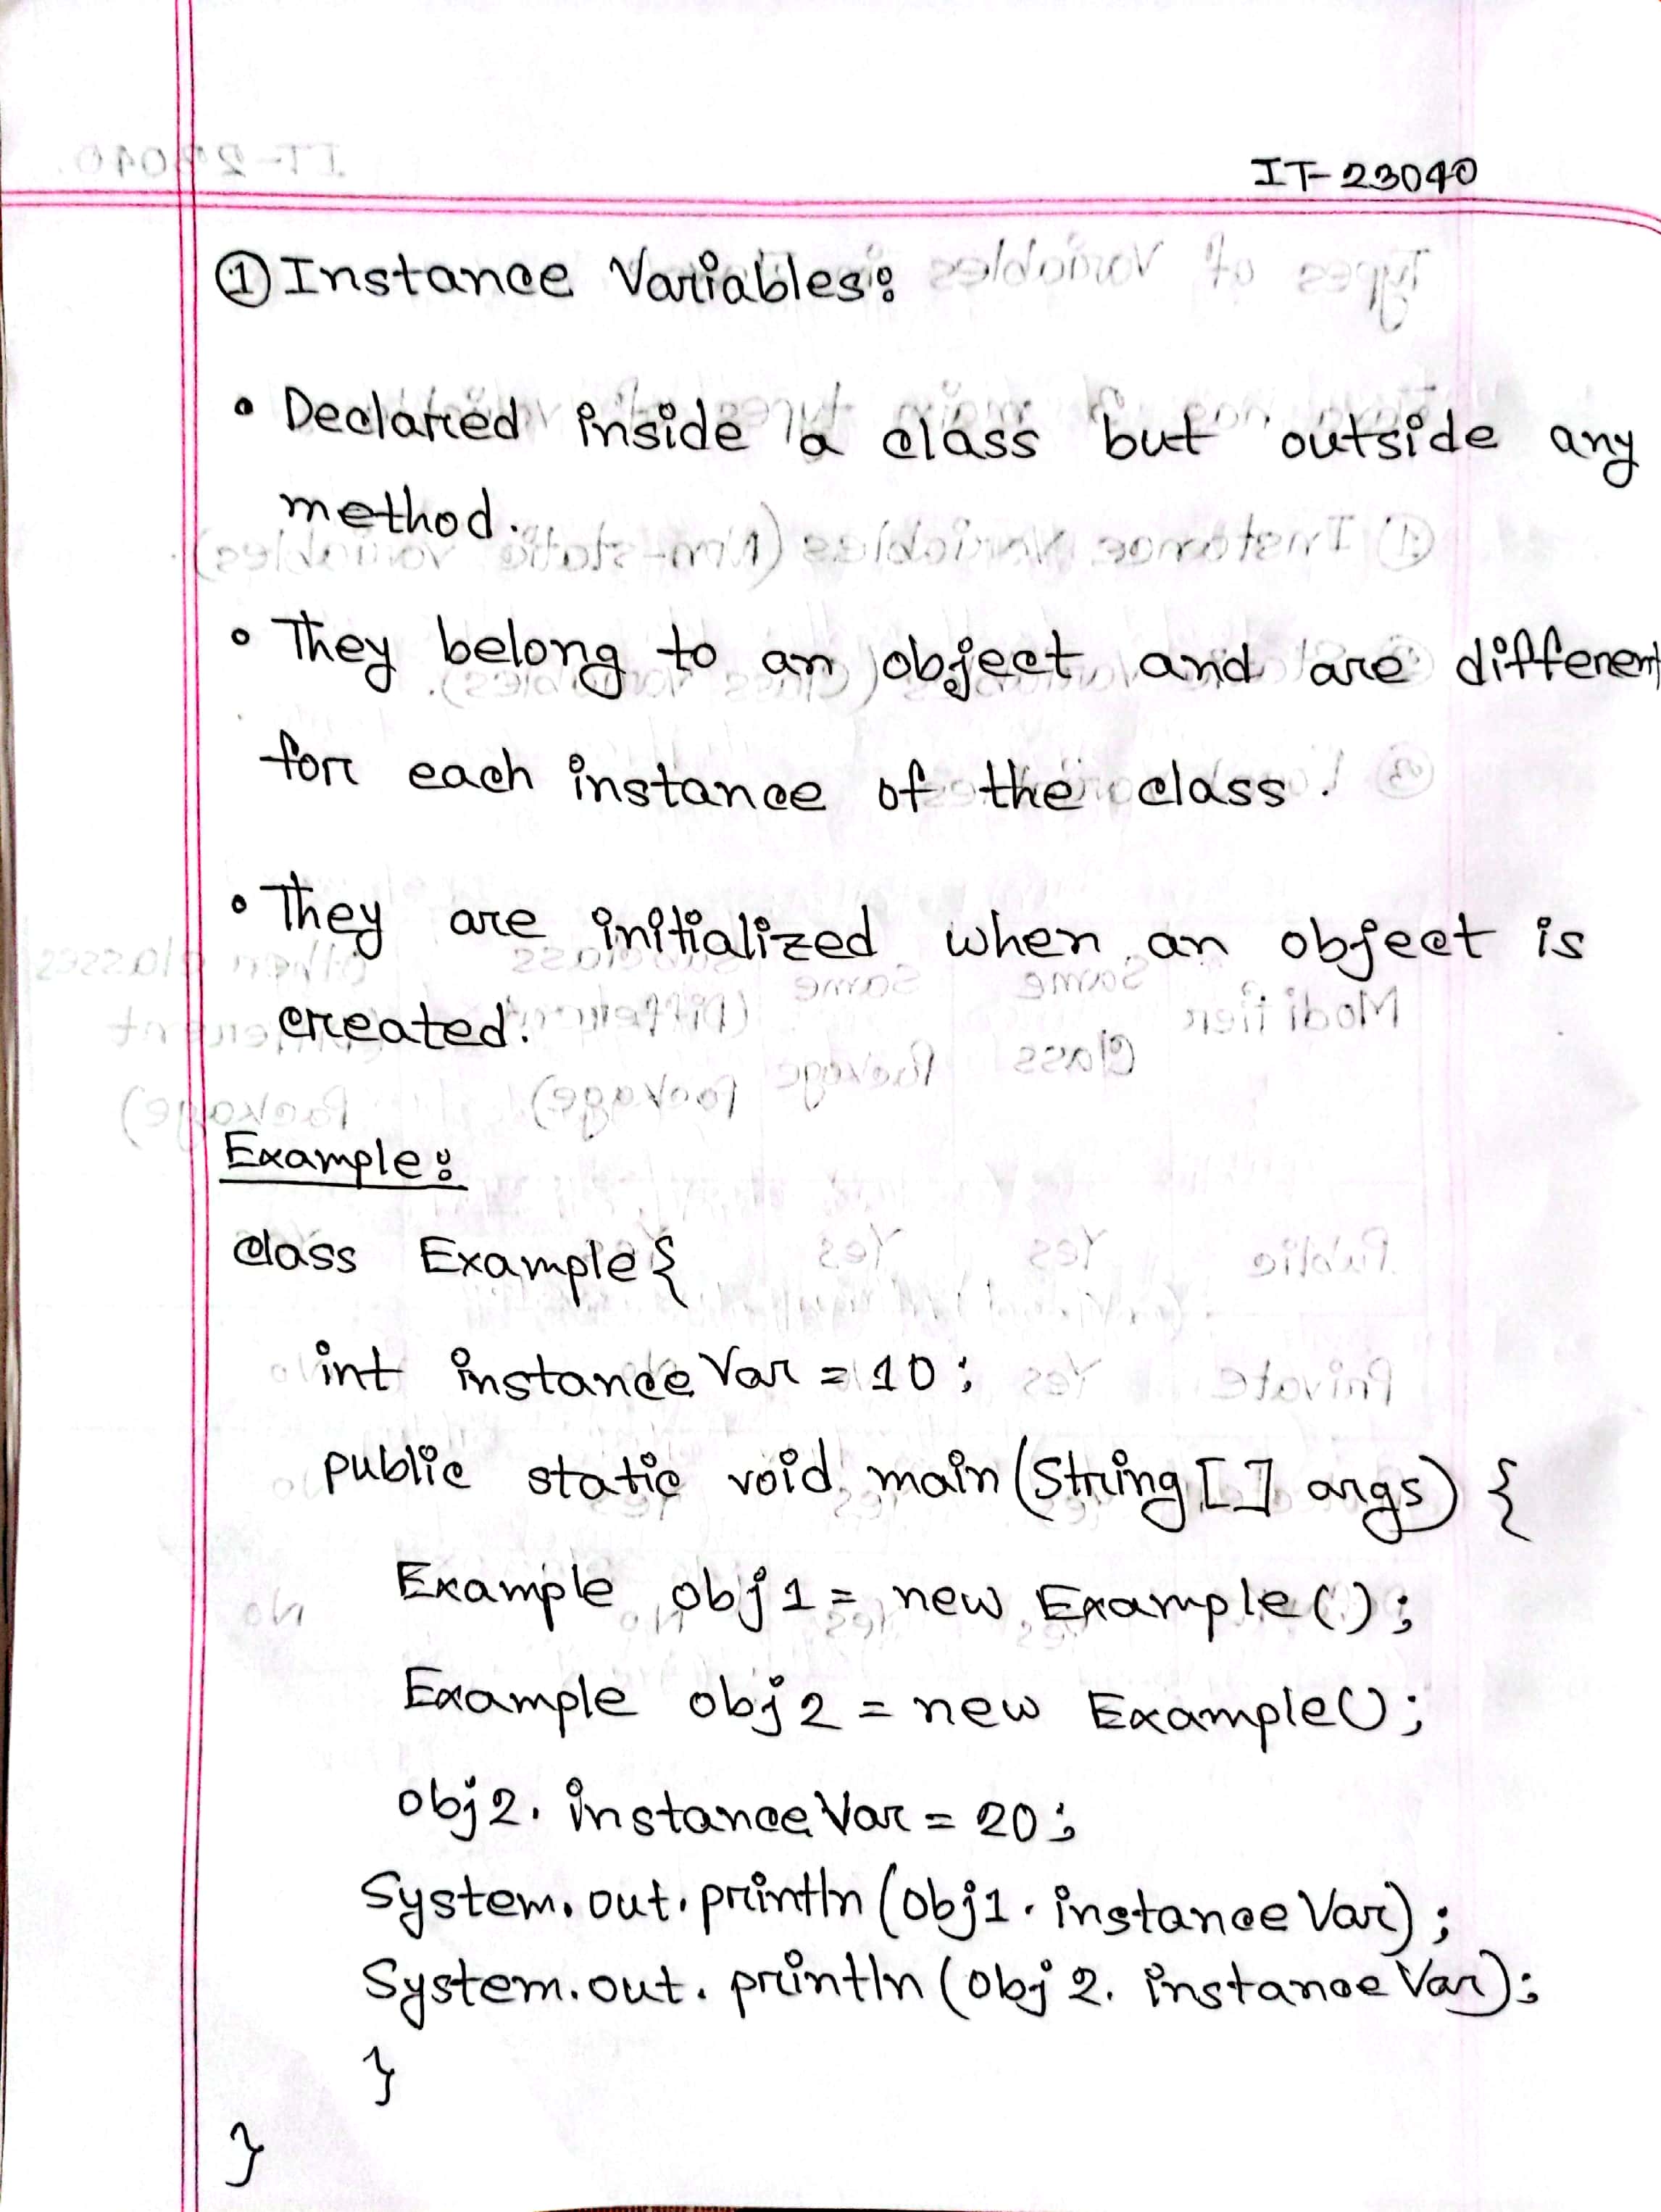 IT-23040
① Instance Variables:
• Declared inside a class but outside any
method.
• They belong to an object and are different
for each instance of the class.
• They are initialized when an object is
created.
Example:
class Example {
int instanceVar = 10;
public static void main (String [] args) {
Example obj1 = new Example();
Example obj2 = new Example();
obj2. instanceVar = 20;
System.out.println (obj1. instanceVar);
System.out.println (obj2. instanceVar);
}
}